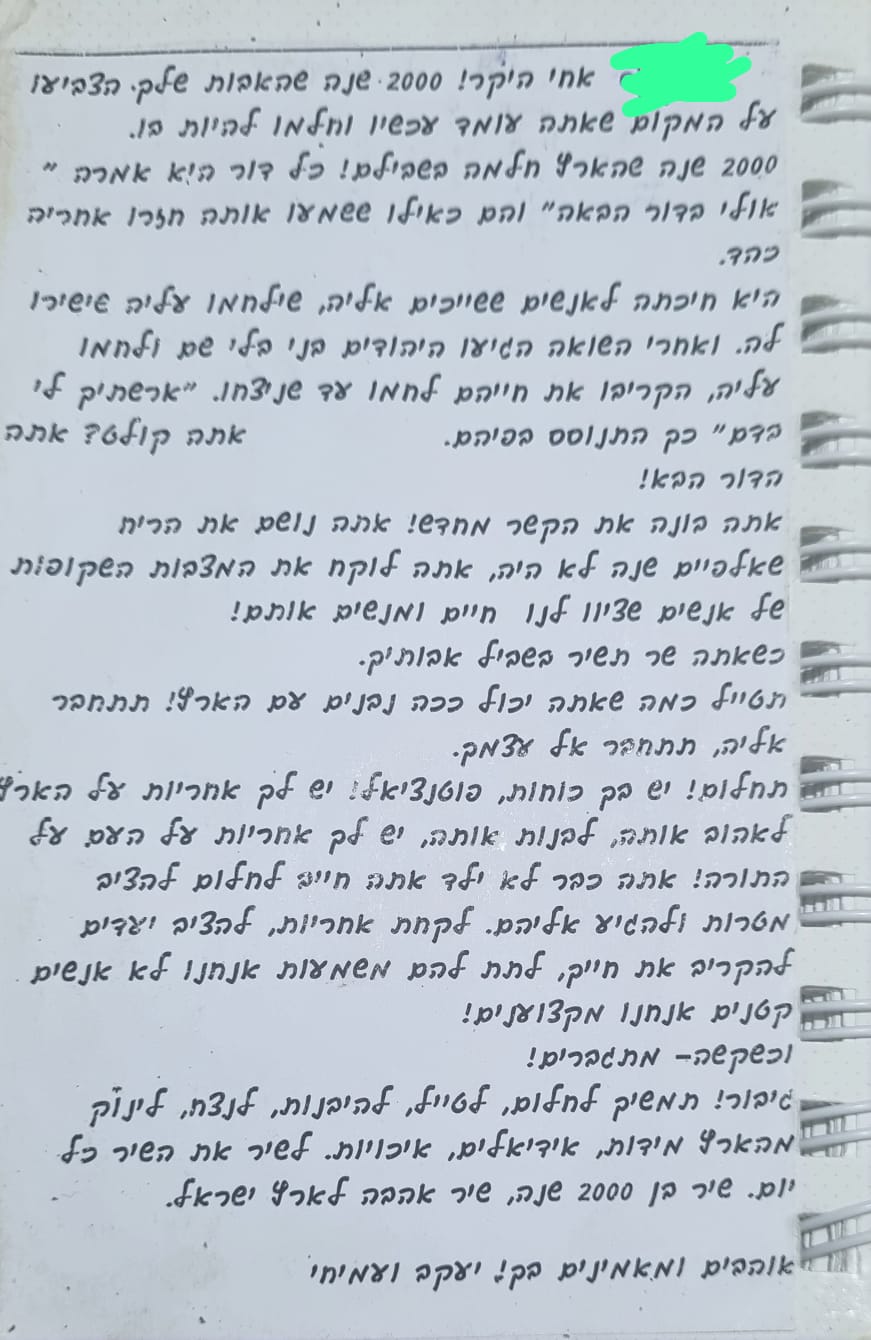 אחי היקר! 2000 שנה שהאבות שלך הצביעו
על המקום שאתה עומד עכשיו וחלמו להיות בו.
2000 שנה שהארץ חלמה בשבילם! כל דור היא אמרה "
אולי בדור הבאה" והם כאילו ששמעו אותה חזרו אחריה
כהד.
היא חיכתה לאנשים ששייכים אליה, שילחמו עליה שישירו
לה. ואחרי השואה הגיעו היהודים בני בלי שם ולחמו
עליה, הקריבו את חייהם לחמו עד שניצחו. "ארשתיך לי
בדם" כך התנוסס בפיהם. אתה קולט? אתה
הדור הבא!
אתה בונה את הקשר מחדש! אתה נושם את הריח
שאלפיים שנה לא היה, אתה לוקח את המצבות השקופות
של אנשים שציוו לנו חיים ומנשים אותם!
כשאתה שר תשיר בשביל אבותיך.
תטייל כמה שאתה יכול ככה נבנים עם הארץ! תתחבר
אליה, תתחבר אל עצמך.
תחלום! יש בך כוחות, פוטנציאל! יש לך אחריות על הארץ
לאהוב אותה, לבנות אותה, יש לך אחריות על העם על
התורה! אתה כבר לא ילד אתה חייב לחלום להציב
מטרות ולהגיע אליהם. לקחת אחריות, להציב יעדים
להקריב את חייך, לתת להם משמעות אנחנו לא אנשים
קטנים אנחנו מקצוענים!
וכשקשה- מתגברים!
גיבור! תמשיך לחלום, לטייל, להיבנות, לנצח, לינוק
מהארץ מידות, אידיאלים, איכויות. לשיר את השיר כל
יום. שיר בן 2000 שנה, שיר אהבה לארץ ישראל.
אוהבים ומאמינים בך! יעקב ועמיחי